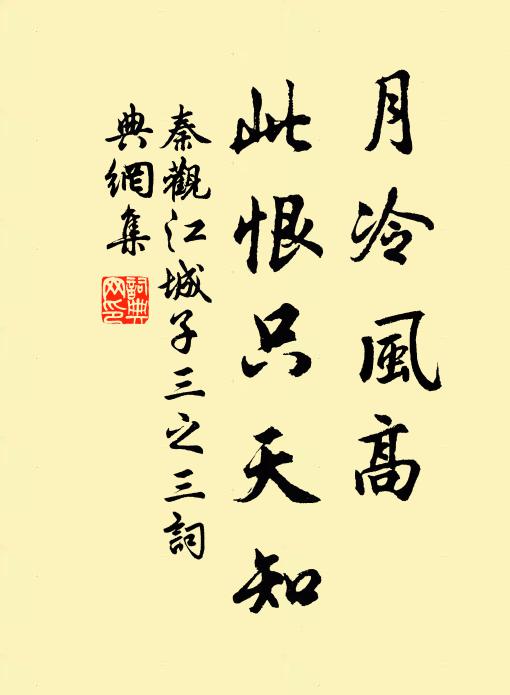 月冷風高
此恨只天知
秦觀江城子三之三詞
典網集
詞典
网印